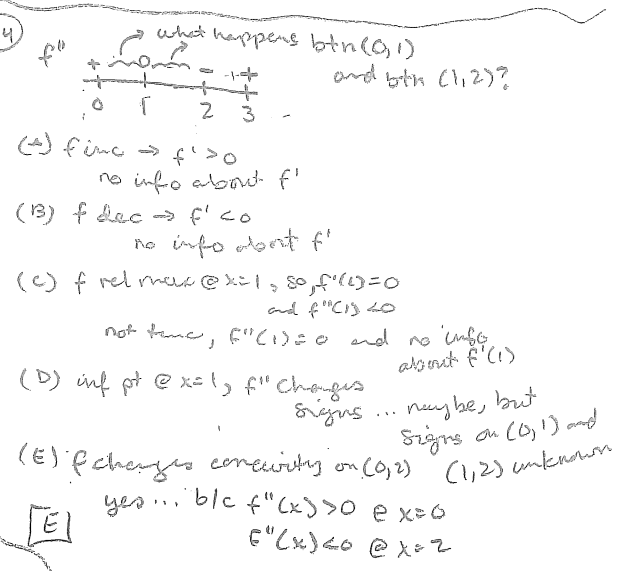 4
what happens btn (0,1)
f" + 0 - + and btn (1,2)?
0 1 2 3
(A) f inc ⇒ f' >0
no info about f'
(B) f dec → f' <0
no info about f'
(C) f rel max @ x=1, so, f'(1)=0
and f"(1) <0
not true, f"(1)=0 and no info
about f'(1)
(D) inf pt @ x=1, f" changes
signs ... maybe, but
signs on (0,1) and
(1,2) unknown
(E) f changes concavity on (0,2)
yes... b/c f"(x) >0 @ x=0
f"(x) <0 @ x=2
E